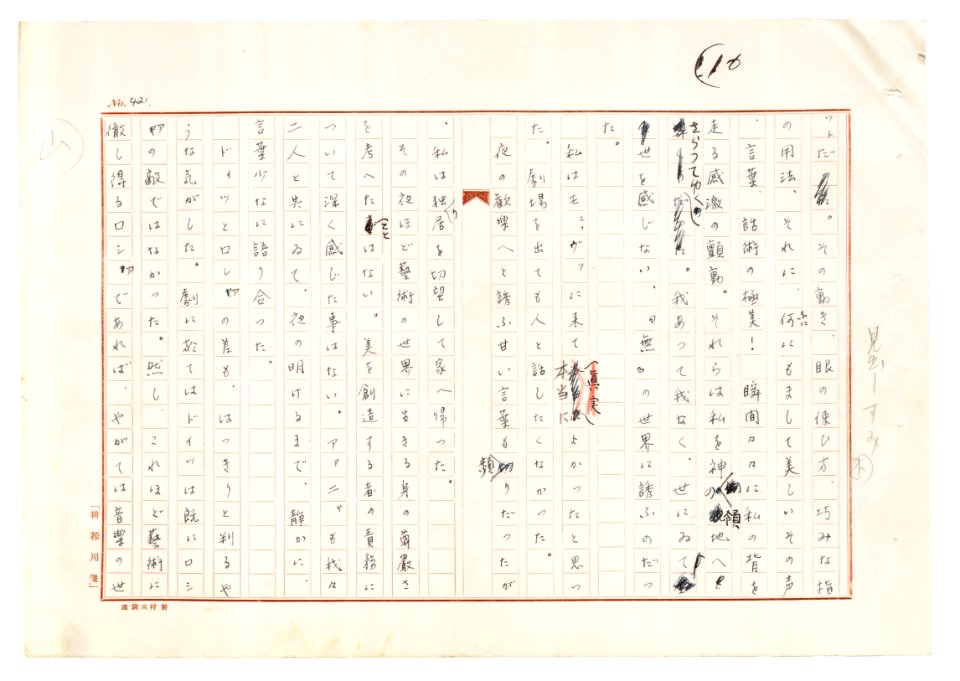 (16
No. 421.
ットだ。その動き、眼の使ひ方、巧みな指
の用法、それに、何にもまして美しいその声
、言葉、話術の極美! 瞬間々々に私の背を
走る感激の顫動。それらは私を神の領地へと
さらつてゆくのだ。我あつて我なく、世にゐて
世を感じない、『無』の世界に誘ふのだつ
た。
私はモスクヴァに来て本当によかつたと思つ
眞実
た。劇場を出ても人と話したくなかつた。
夜の歓楽へと誘ふ甘い言葉も頻りだつたが
、私は独居を切望して家へ帰つた。
その夜ほど藝術の世界に生きる身の尊厳さ
を考へたことはない。美を創造する者の責務に
ついて深く感じた事はない。アアニャも我々
二人と共にゐて、夜の明けるまで、静かに、
言葉少なに語り合つた。
ドイツとロシヤの差も、はつきりと判るや
うな気がした。劇に於てはドイツは既にロシ
ヤの敵ではなかつた。然し、これほど藝術に
徹し得るロシヤであれば、やがては音樂の世
見出しすみ
山
「耕筰用箋」
池袋高村製